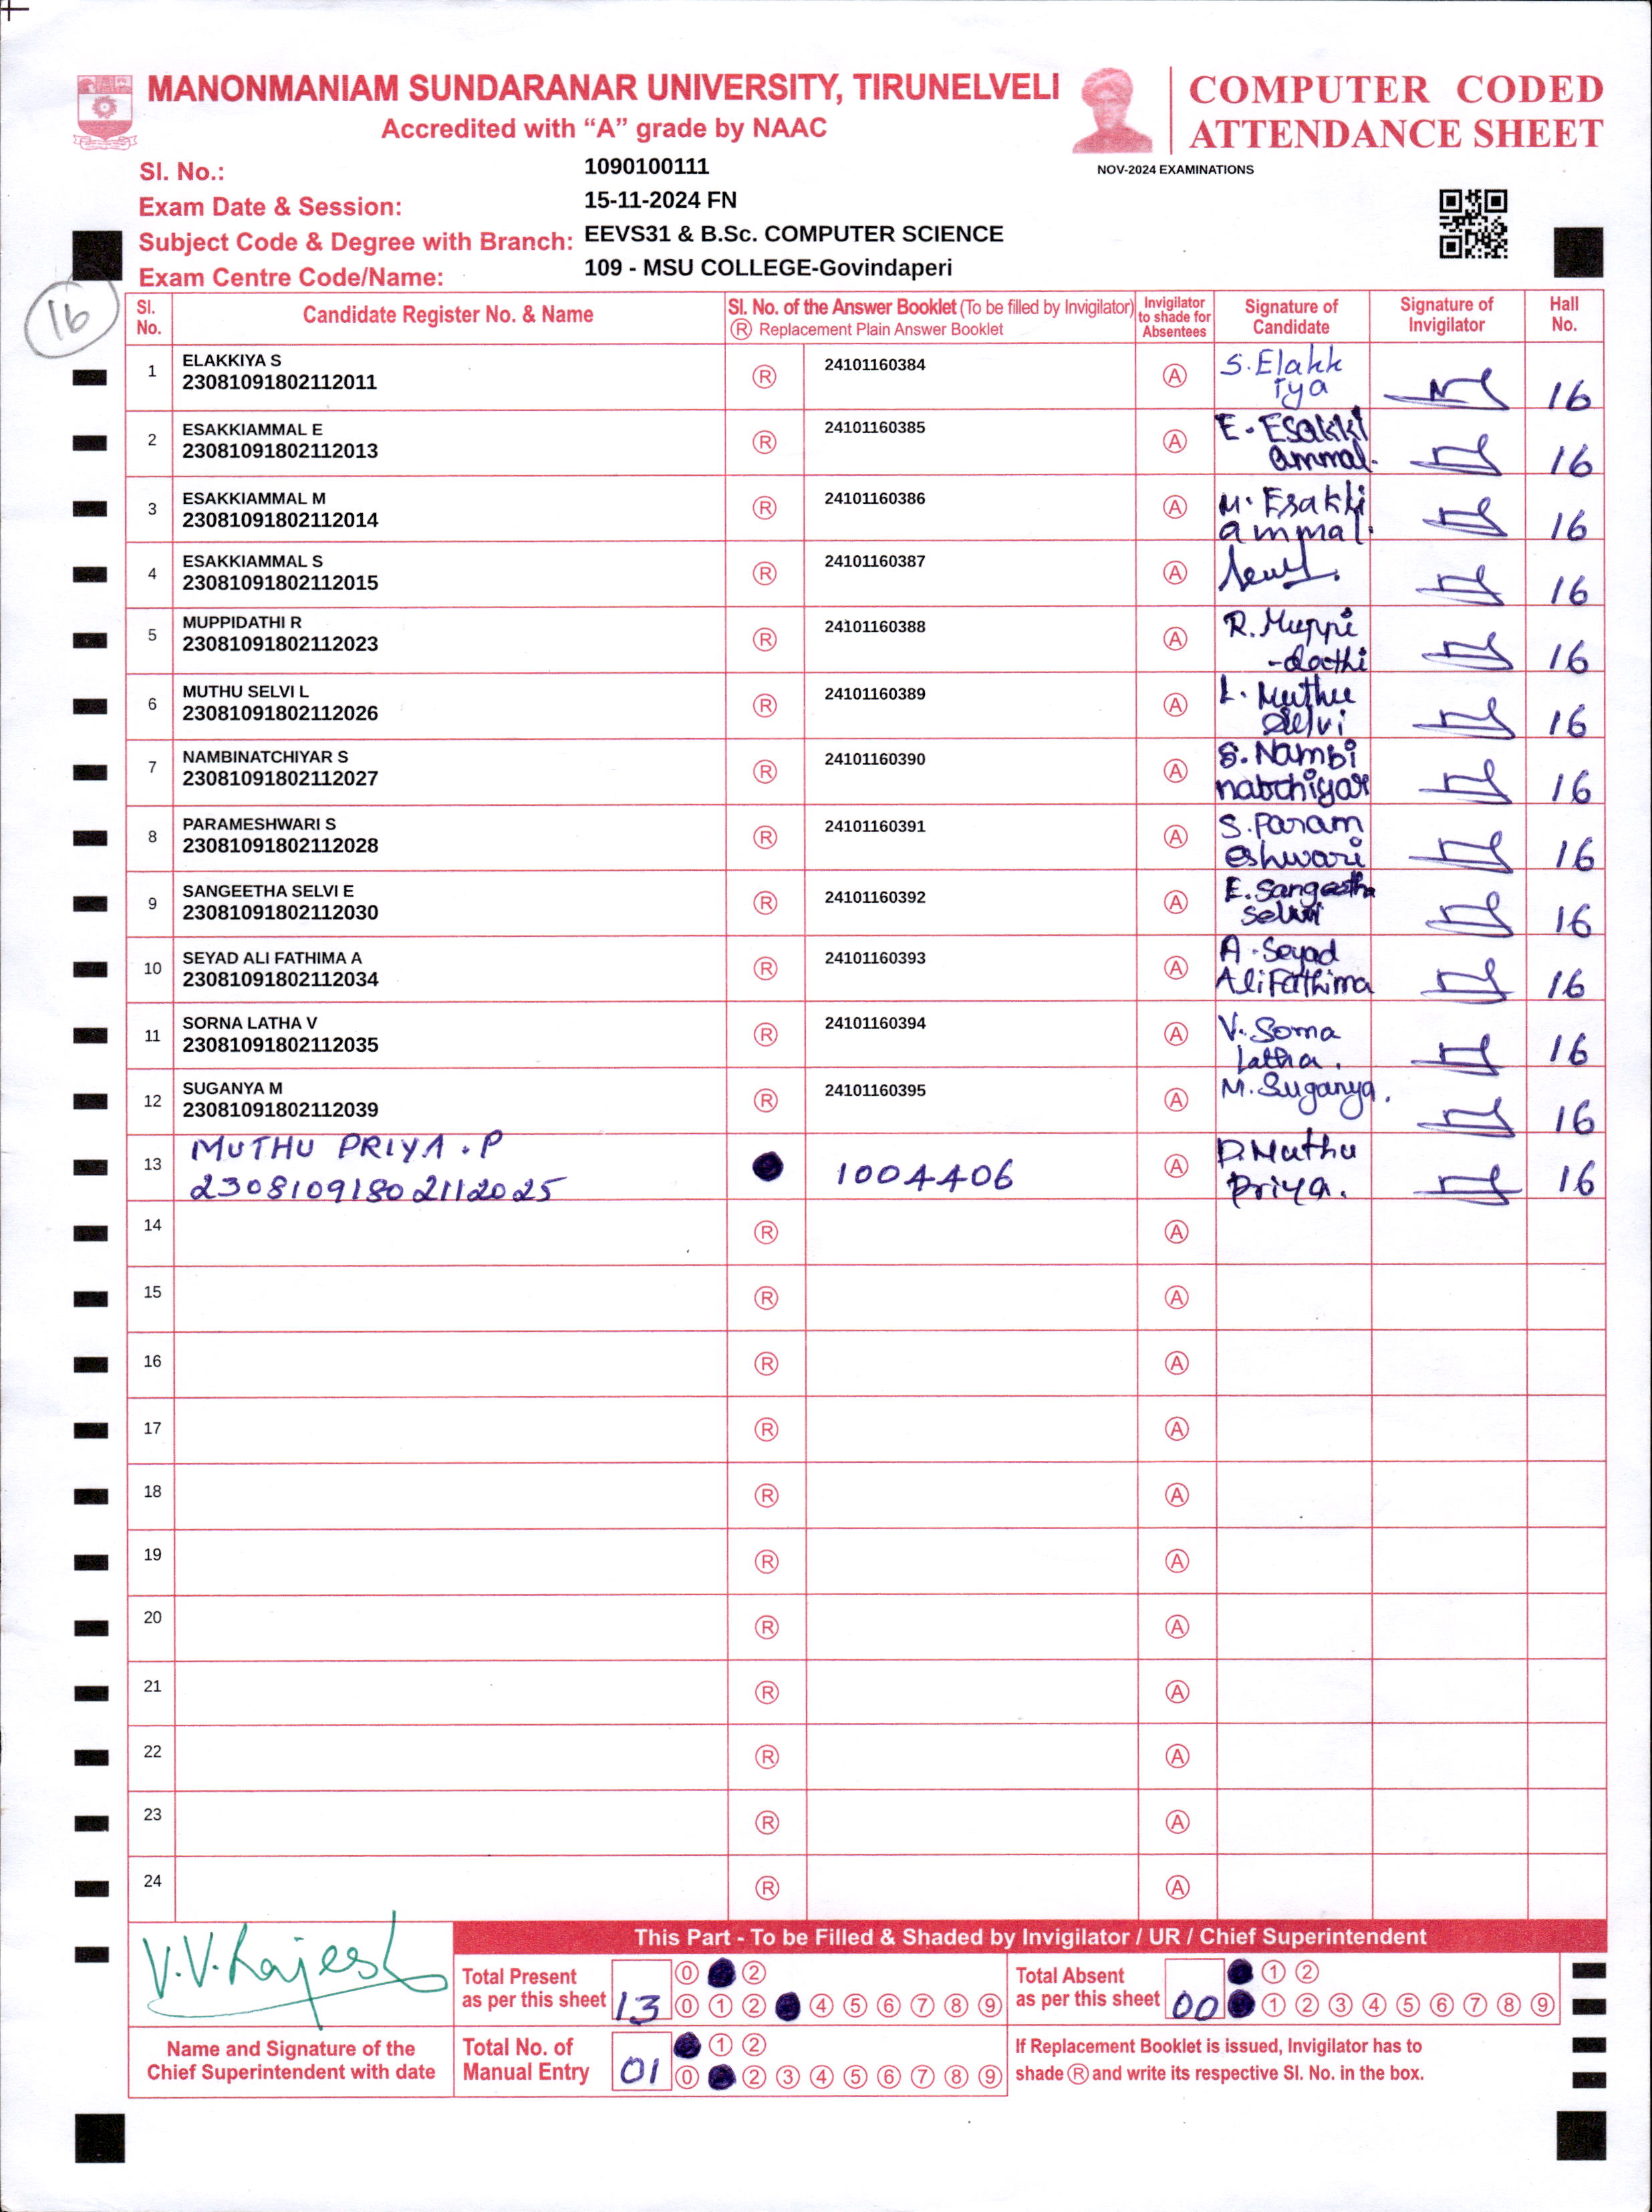 MANONMANIAM SUNDARANAR UNIVERSITY, TIRUNELVELI
Accredited with “A” grade by NAAC
COMPUTER CODED
ATTENDANCE SHEET
NOV-2024 EXAMINATIONS
Sl. No.: 1090100111
Exam Date & Session: 15-11-2024 FN
Subject Code & Degree with Branch: EEVS31 & B.Sc. COMPUTER SCIENCE
Exam Centre Code/Name: 109 - MSU COLLEGE-Govindaperi
16
Sl. No. Candidate Register No. & Name Sl. No. of the Answer Booklet (To be filled by Invigilator) Ⓡ Replacement Plain Answer Booklet Invigilator to shade for Absentees Signature of Candidate Signature of Invigilator Hall No.
1 ELAKKIYA S 23081091802112011 Ⓡ 24101160384 Ⓐ S.Elakk iya 16
2 ESAKKIAMMAL E 23081091802112013 Ⓡ 24101160385 Ⓐ E. Esakki ammal. 16
3 ESAKKIAMMAL M 23081091802112014 Ⓡ 24101160386 Ⓐ M. Esakki ammal. 16
4 ESAKKIAMMAL S 23081091802112015 Ⓡ 24101160387 Ⓐ 16
5 MUPPIDATHI R 23081091802112023 Ⓡ 24101160388 Ⓐ R.Muppi -dathi 16
6 MUTHU SELVI L 23081091802112026 Ⓡ 24101160389 Ⓐ L. Muthu Selvi 16
7 NAMBINATCHIYAR S 23081091802112027 Ⓡ 24101160390 Ⓐ S. Nambi natchiyar 16
8 PARAMESHWARI S 23081091802112028 Ⓡ 24101160391 Ⓐ S. Param eshwari 16
9 SANGEETHA SELVI E 23081091802112030 Ⓡ 24101160392 Ⓐ E. Sangeetha Selvi 16
10 SEYAD ALI FATHIMA A 23081091802112034 Ⓡ 24101160393 Ⓐ A. Seyad Ali Fathima 16
11 SORNA LATHA V 23081091802112035 Ⓡ 24101160394 Ⓐ V. Sorna Latha. 16
12 SUGANYA M 23081091802112039 Ⓡ 24101160395 Ⓐ M. Suganya. 16
13 MUTHU PRIYA . P 23081091802112025 1004406 Ⓐ P. Muthu Priya. 16
14 Ⓡ Ⓐ
15 Ⓡ Ⓐ
16 Ⓡ Ⓐ
17 Ⓡ Ⓐ
18 Ⓡ Ⓐ
19 Ⓡ Ⓐ
20 Ⓡ Ⓐ
21 Ⓡ Ⓐ
22 Ⓡ Ⓐ
23 Ⓡ Ⓐ
24 Ⓡ Ⓐ
V.V.Rajesh
Name and Signature of the
Chief Superintendent with date
This Part - To be Filled & Shaded by Invigilator / UR / Chief Superintendent
Total Present as per this sheet 13
⓪ ②
⓪ ① ② ④ ⑤ ⑥ ⑦ ⑧ ⑨
Total Absent as per this sheet 00
① ②
① ② ③ ④ ⑤ ⑥ ⑦ ⑧ ⑨
Total No. of Manual Entry 01
① ②
⓪ ② ③ ④ ⑤ ⑥ ⑦ ⑧ ⑨
If Replacement Booklet is issued, Invigilator has to
shade Ⓡ and write its respective Sl. No. in the box.